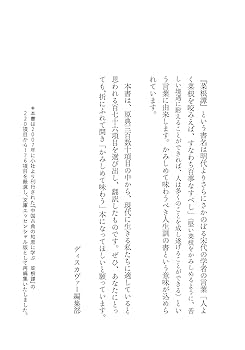 『菜根譚』という書名は明代よりさらにさかのぼる宋代の学者の言葉「人よ
く菜根を咬みえば、すなわち百事なすべし」(堅い菜根をかみしめるように、苦
しい境遇に耐えることができれば、人は多くのことを成し遂げることができる)とい
う言葉に由来します。かみしめて味わうべき人生訓の書という意味が込めら
れています。
本書は、原典三百数十項目の中から、現代に生きる私たちに適していると
思われる百七十六項目を選び出し、翻訳したものです。ぜひ、あなたにとっ
ても、折にふれて開き「かみしめて味わう」本になってほしいと願っています。
ディスカヴァー編集部
*本書は2007年に小社より刊行された『中国古典の知恵に学ぶ 菜根譚』の
220項目から176項目を厳選し、文庫エッセンシャル版として再編集いたしました。